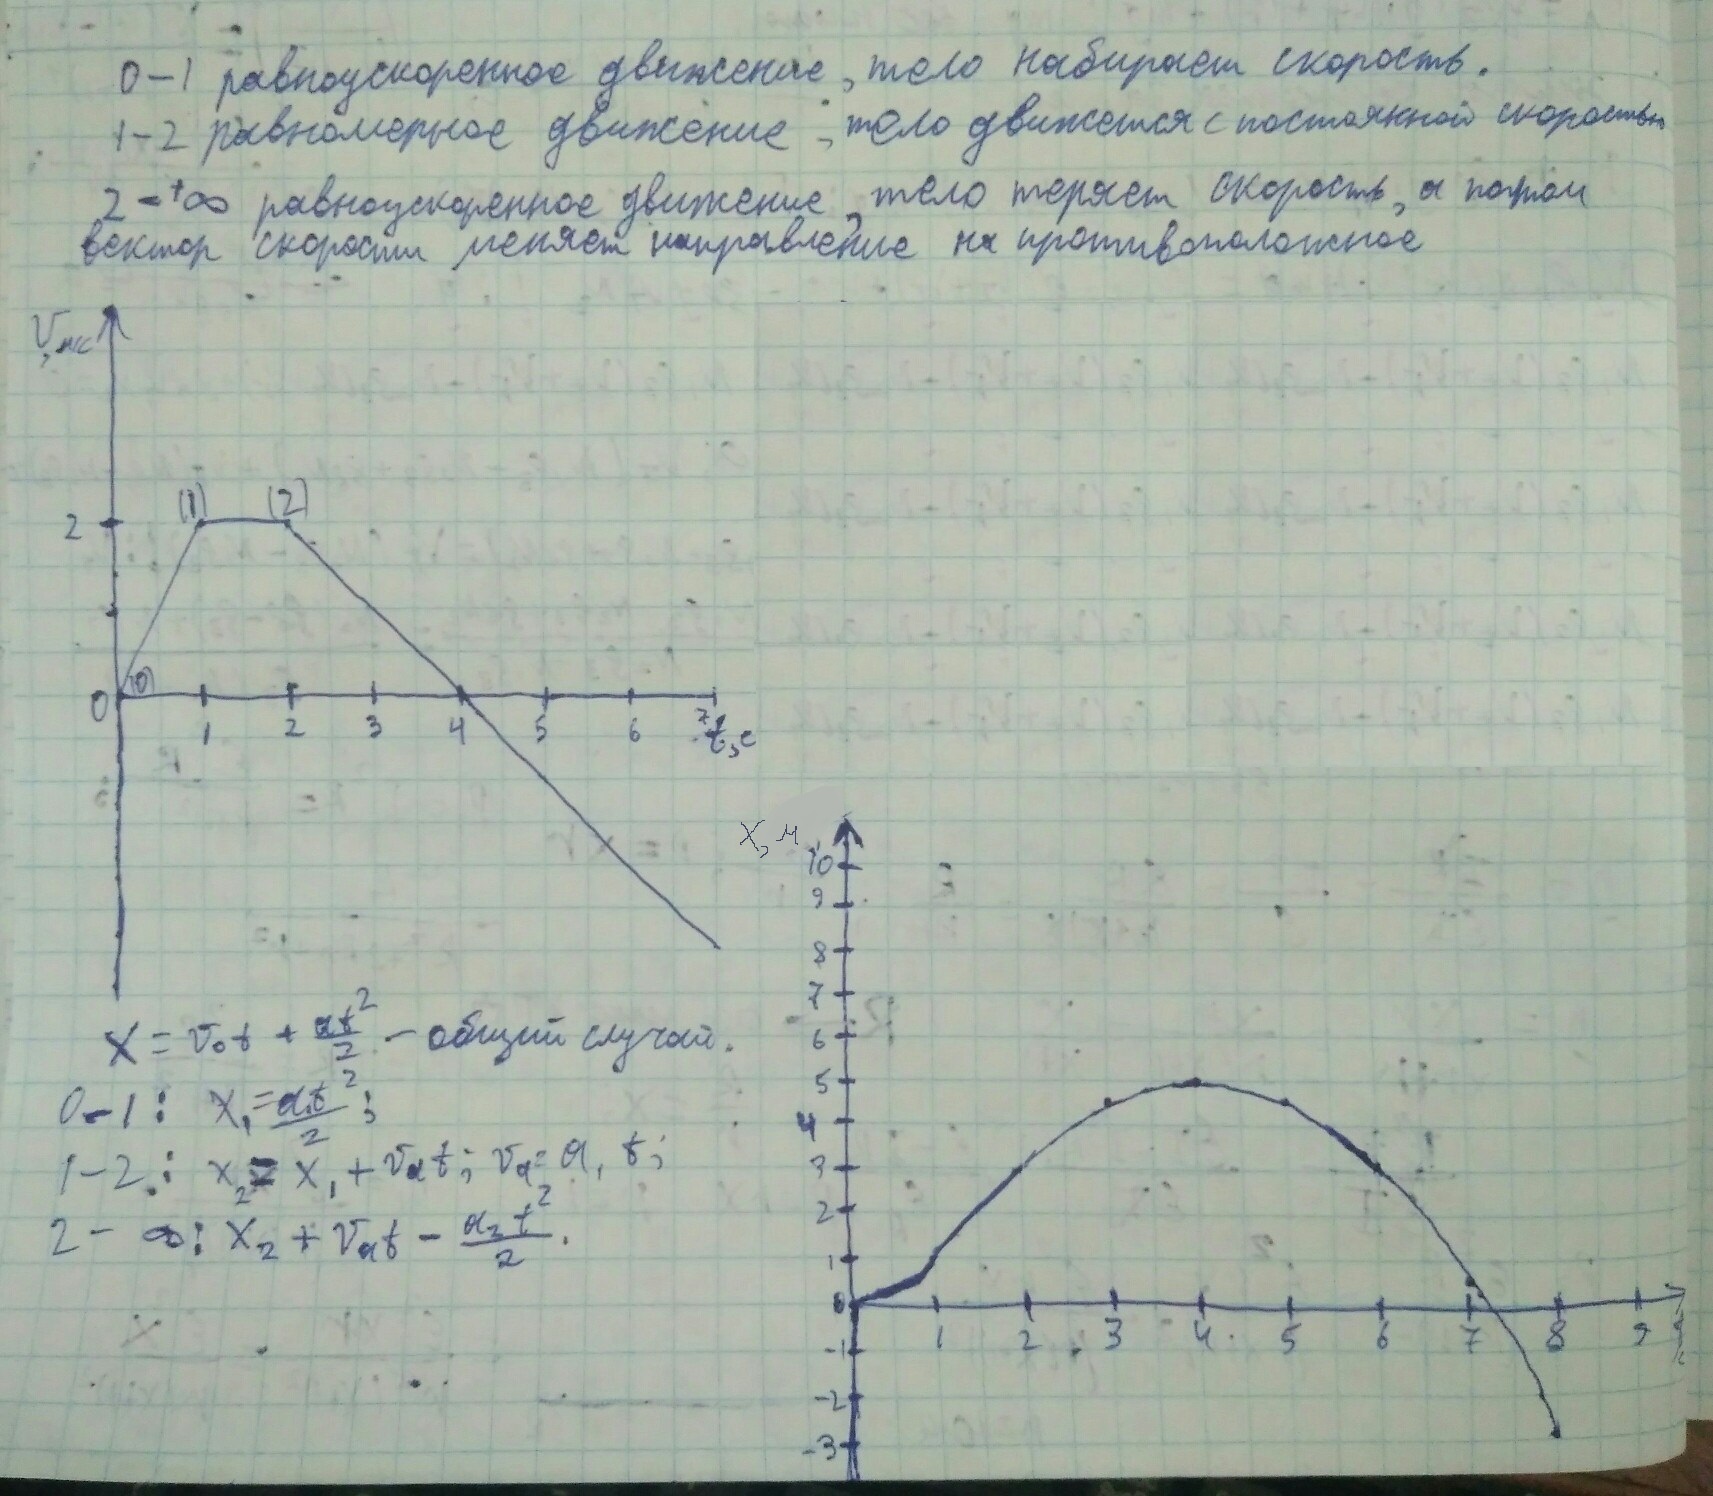 0-1 равноускоренное движение, тело набирает скорость.
1-2 равномерное движение, тело движется с постоянной скоростью
2-+∞ равноускоренное движение, тело теряет скорость, а потом
вектор скорости меняет направление на противоположное
V, м/с
(1) (2)
2
0 (0)
1 2 3 4 5 6 7 t, с
x = v₀t + at²/2 - общий случай.
0-1: x₁ = a₁t²/2;
1-2: x₂ = x₁ + vₐt; vₐ = a₁t;
2-∞: x₂ + vₐt - a₂t²/2.
X, м
10
9
8
7
6
5
4
3
2
1
0
1 2 3 4 5 6 7 8 9
-1
-2
-3